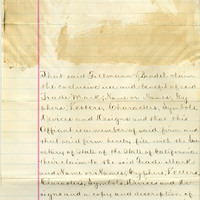 That said Fillmann & Bendel claim
the exclusive use and benefit of said
Trade Mark, Name or Names, Cy-
phers, Letters, Characters, Symbols
Devices and Designs and that this
Affiant is a member of said firm and
that said firm hereby file with the Sec-
retary of State of the State of California
their claim to the said Trade Mark
and Name or Names, Cyphers, Letters,
Characters, Symbols, Devices and De-
signs and a copy and description of